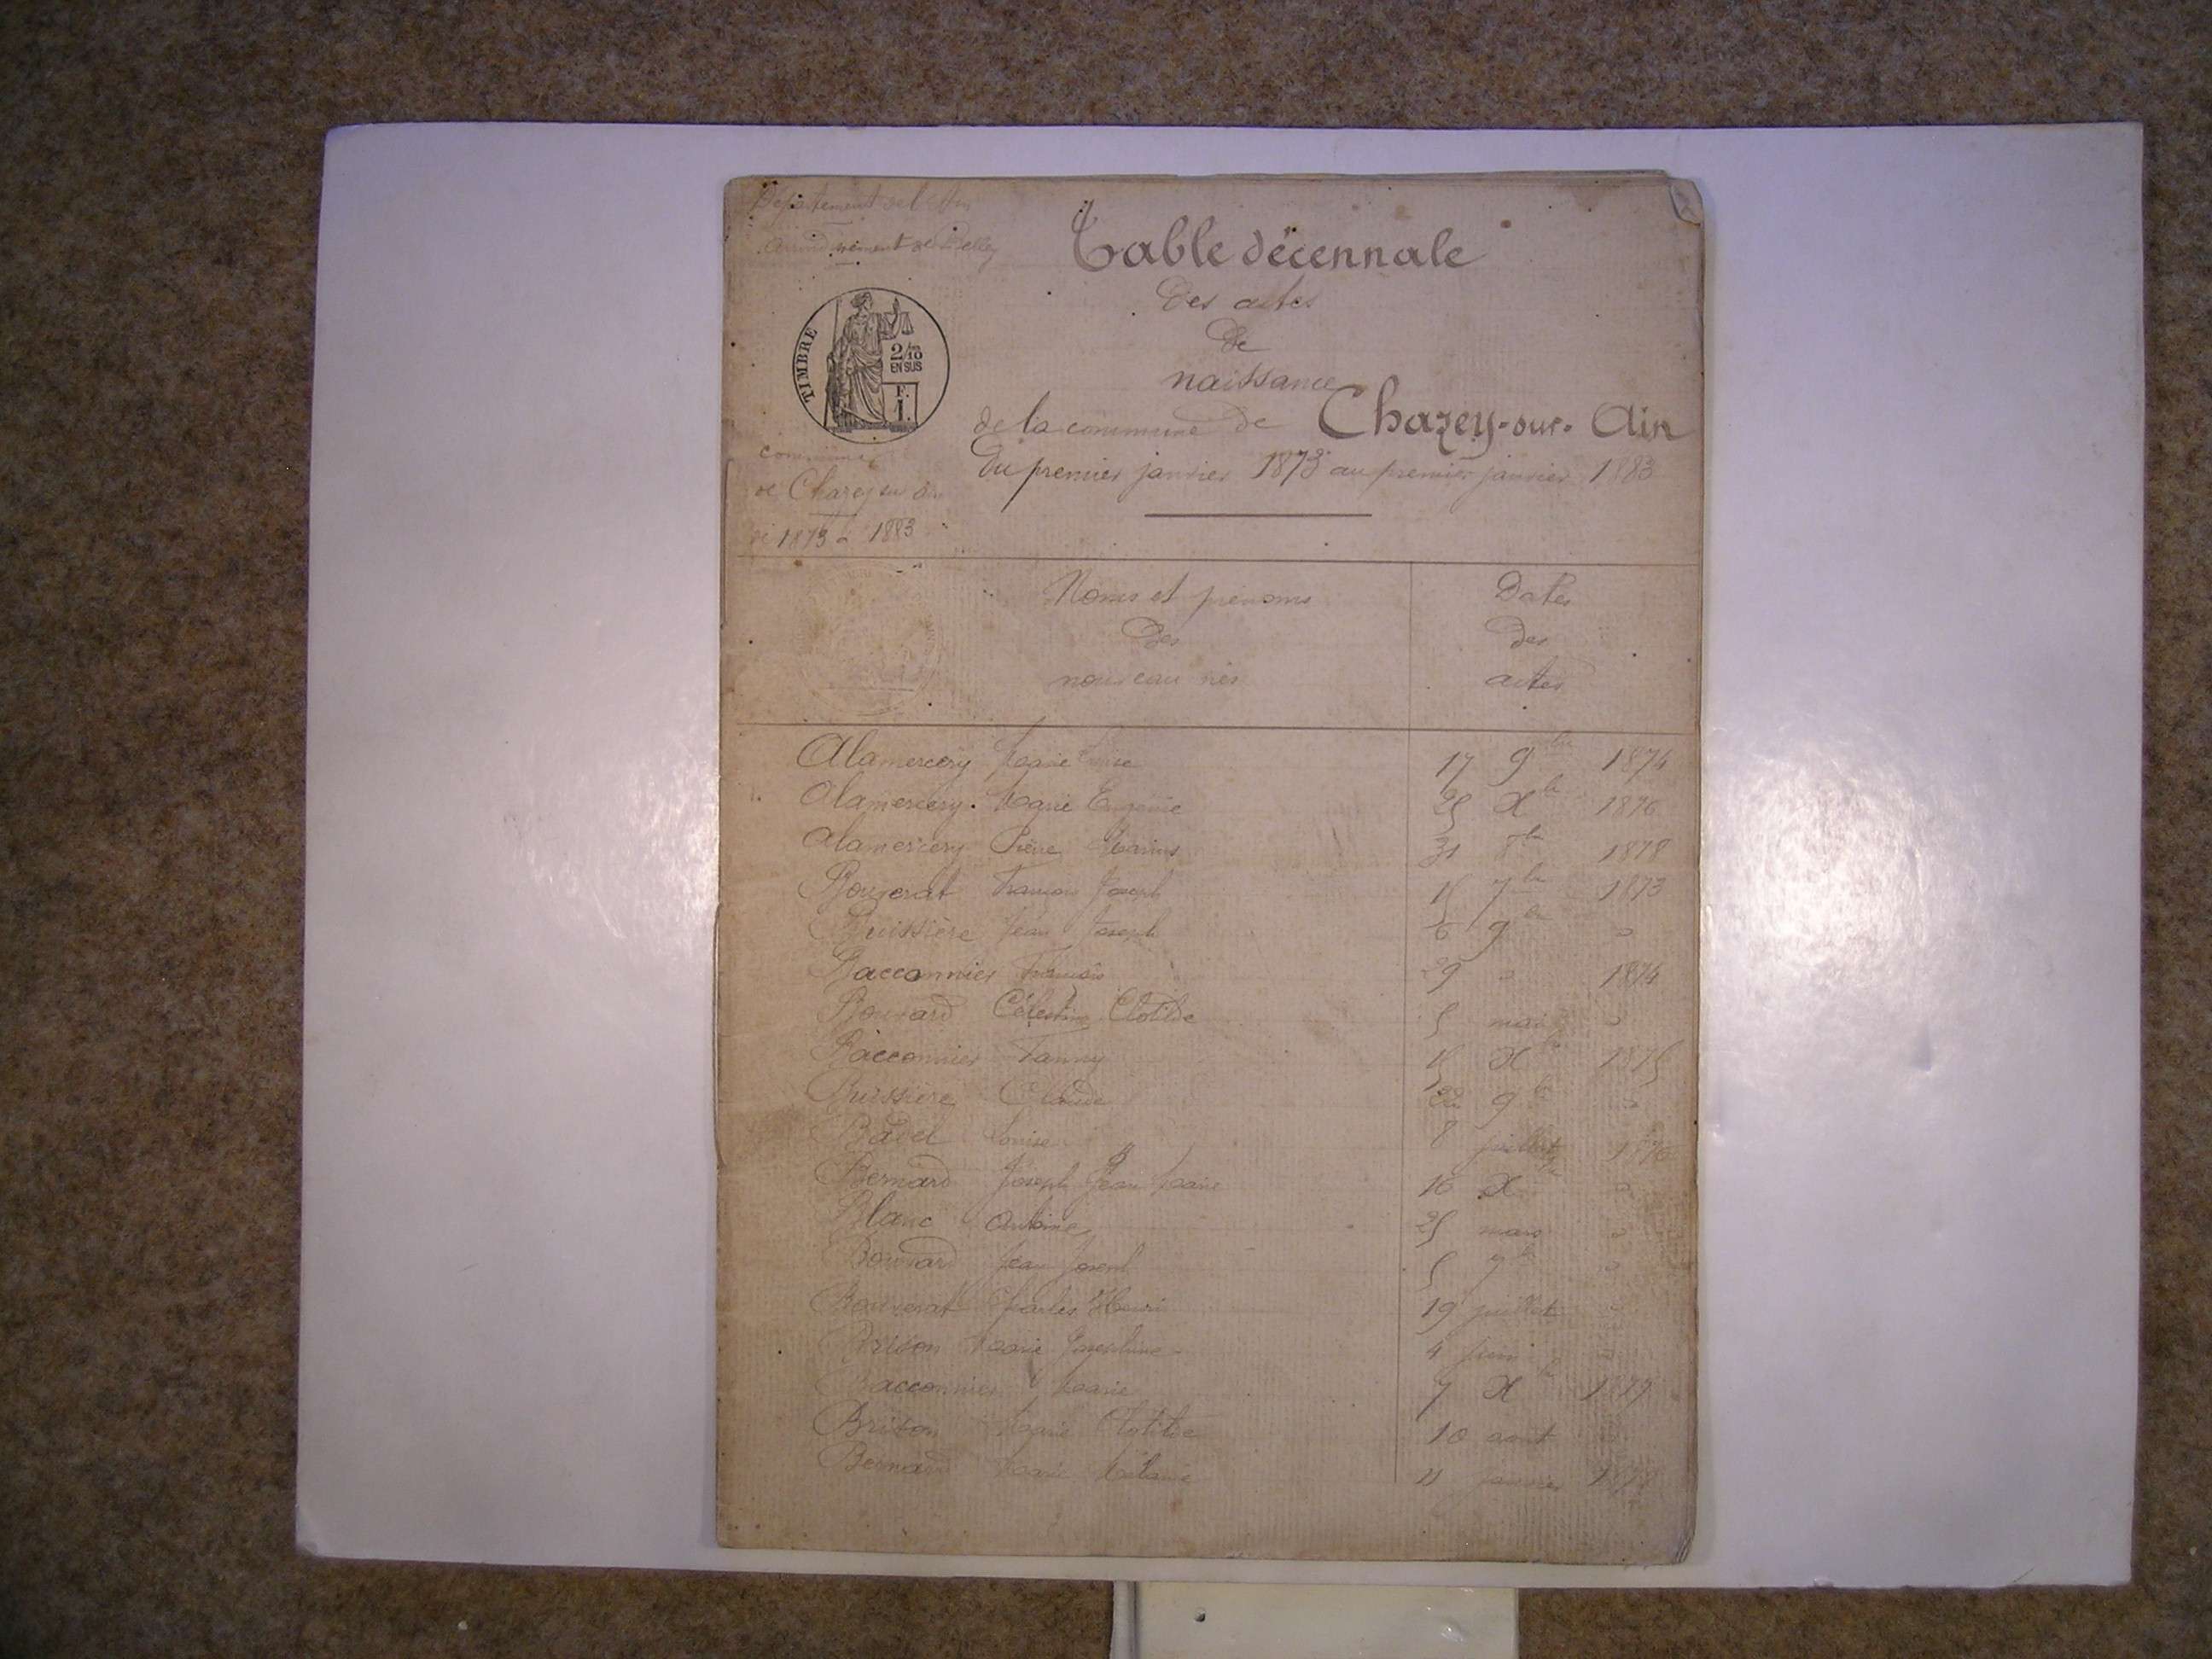 Département de l'Ain
Arrondissement de Belley
Table décennale
des actes
de
naissance
de la commune de Chazey-sur-Ain
Du premier janvier 1873 au premier janvier 1883
TIMBRE
2/10
EN SUS
F.
1.
commune
de Chazey sur Ain
de 1873 à 1883
Noms et prénoms
des
nouveau nés
Dates
des
actes
Alamercery Marie 17 9bre 1874
Alamercery Marie Eugénie 25 Xbre 1876
Alamercery Pierre Marius 31 8bre 1878
Bouverat François Joseph 15 7bre 1873
Buissière Jean Joseph 6 9bre "
Bacconnier François 29 " 1874
Bouvard Célestine Clotilde 5 mai "
Bacconnier Fanny 15 Xbre 1875
Buissière Claude 22 9bre "
Badel Louise 8 juillet 1876
Bernard Joseph Jean Marie 16 Xbre "
Blanc Antoine 25 mars "
Bouvard Jean Joseph 5 7bre "
Bouverat Charles Henri 19 juillet "
Brison Marie Joséphine 4 juin "
Bacconnier Marie 7 Xbre 1877
Brison Marie Clotilde 10 aout "
Bernard Marie Mélanie 11 janvier 1878